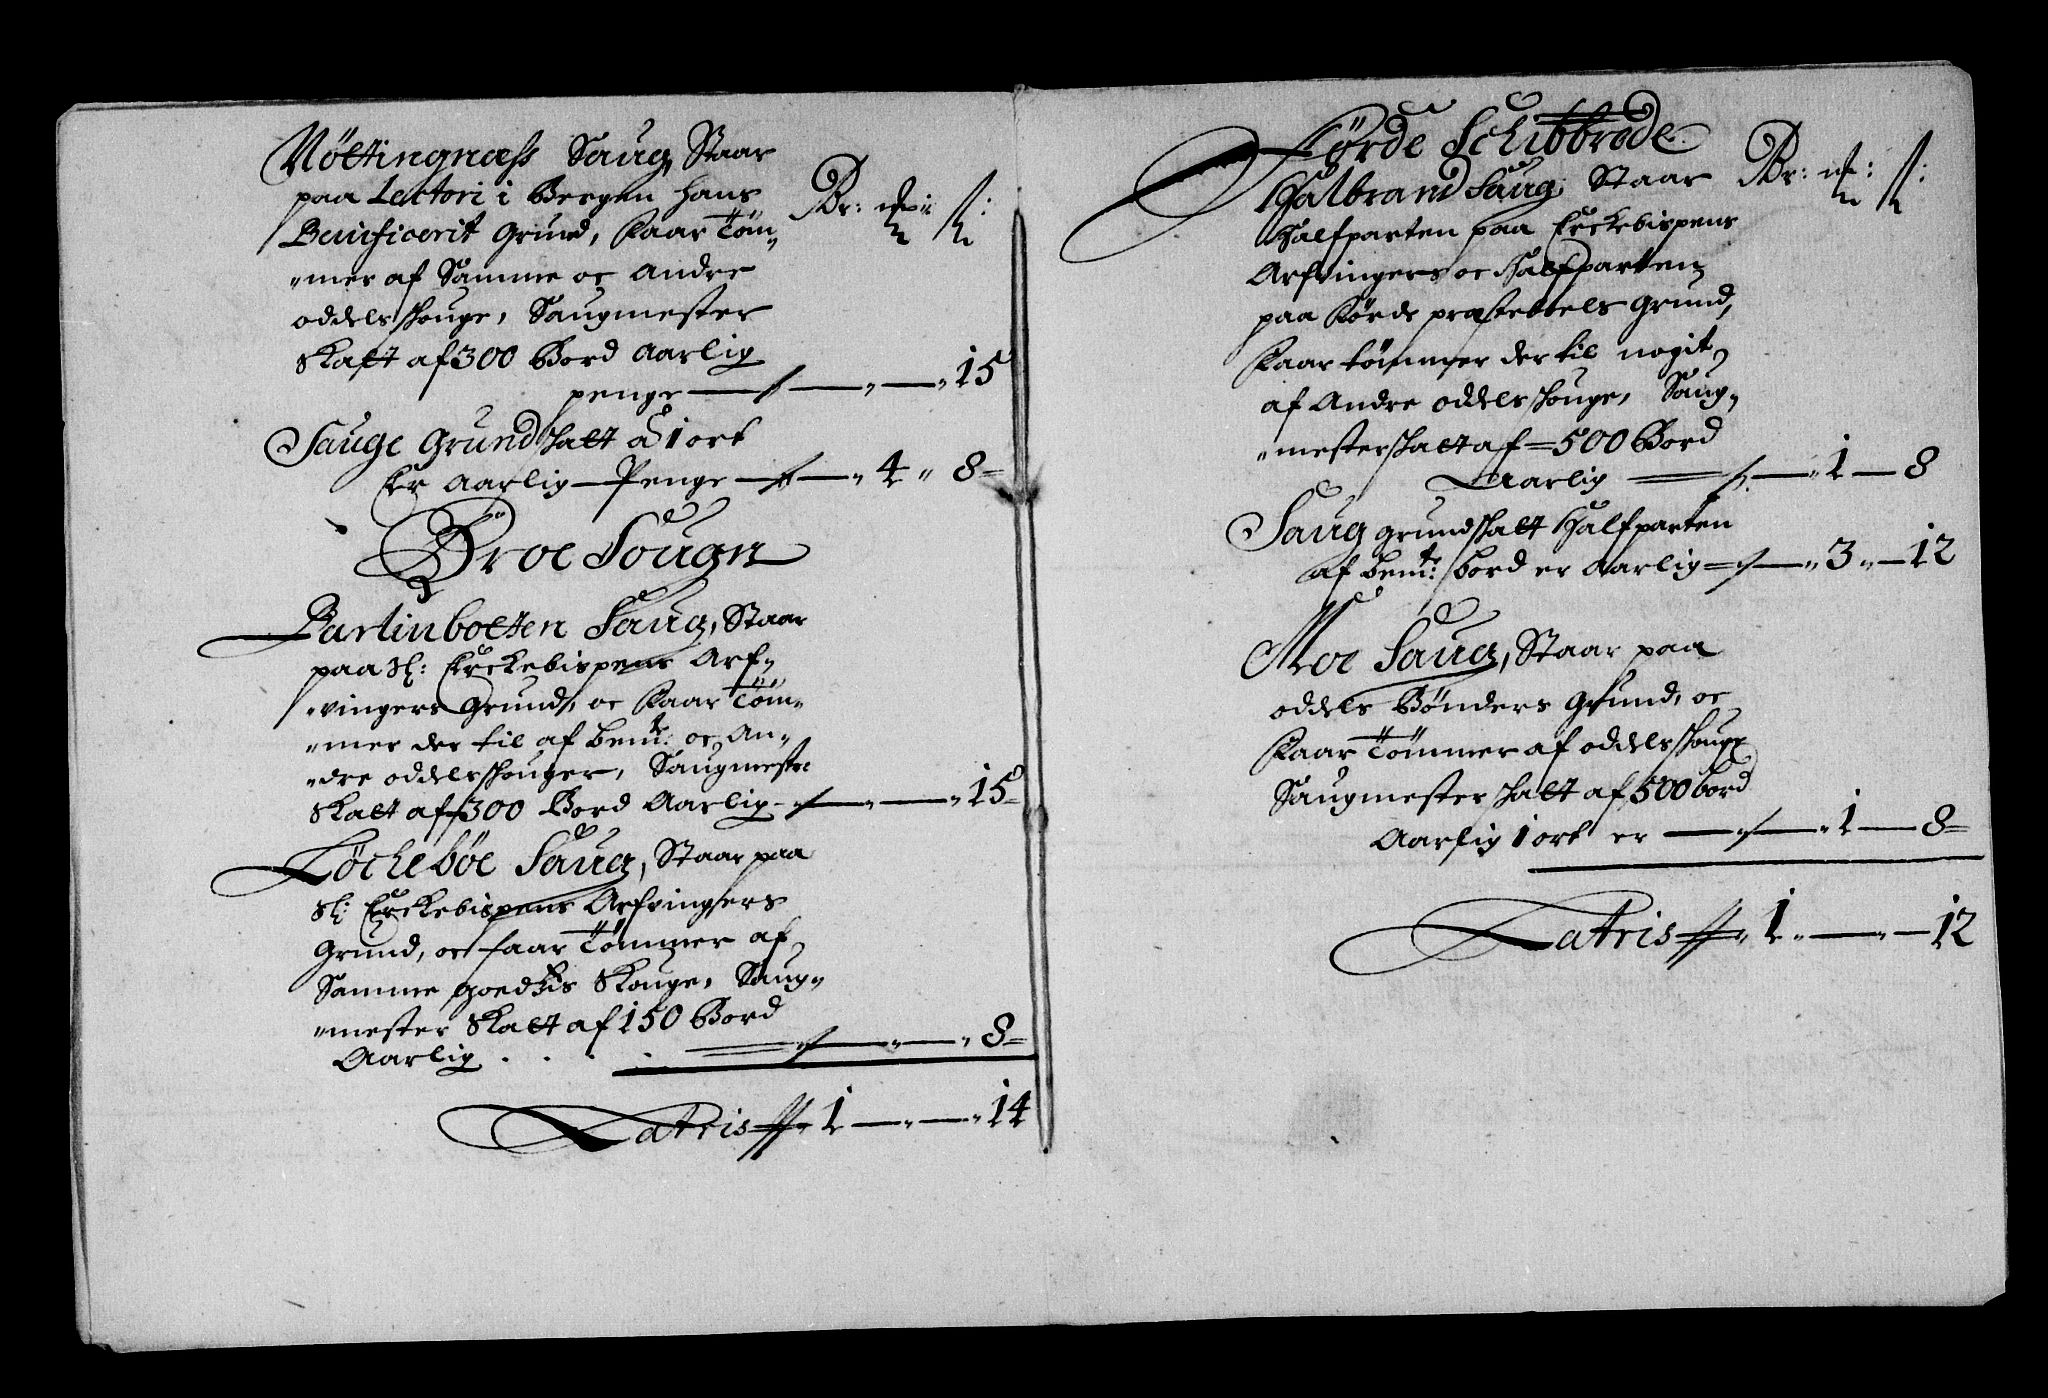 Nöttingness Saug, Staar
paa Lectori i Bergen hans
Br: mk: s:
Beneficerit Grund, faar Töm-
mer af Samme oc Andre
oddels skouge, Saugmester
Skatt af 300 Bord Aarlig
penge — 15
Sauge Grund skatt á 1 ort
Er Aarlig Penge — 4 8
Öroe Sougn
Staar
Saug,
paa Sl: Erckebispens Arf-
vingers Grund, oc faar Töm-
mer der til af bemt: oc An-
dre oddels skouger, Saugmester
Skatt af 300 Bord Aarlig — 15
Löcheböe Saug, Staar paa
Sl: Erckebispens Arfvingers
Grund, oc faar Tömmer af
Samme goedtzis Skouge, Saug-
mester Skatt af 150 Bord
Aarlig — 8
Latris 1 — 14
Förde Schibbrode
Halbrand Saug, Staar
Br: mk: s:
Halfparten paa Erckebispens
Arfvingers oc Halfparten
paa Förde præstebols Grund,
faar tömmer der til nogit
af Andre oddels skouge, Saug-
mester skatt af 500 Bord
Aarlig — 1 — 8
Saug grundskatt Halfparten
af bemt: bord er Aarlig — 3 — 12
Moe Saug, Staar paa
oddels Bönders Grund, oc
faar Tömmer af oddels skouge
Saugmester skatt af 500 bord
Aarlig 1 ort er — 1 — 8
Latris 1 — 12